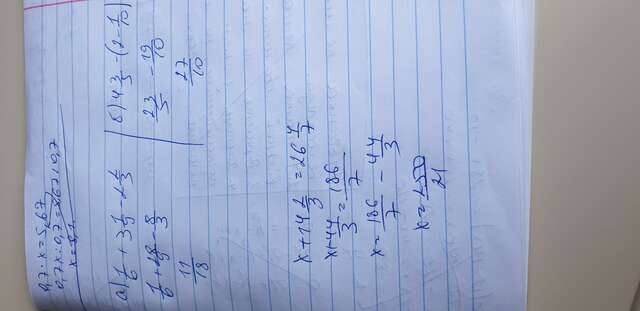 0,7·x=5,67
0,7x:0,7=5,67:0,7
x=8,1
а) 1/6 + 3 1/9 - 2 2/3
1/6 + 28/9 - 8/3
11/18
б) 4 3/5 - (2 - 1/10)
23/5 - 19/10
27/10
x+14 2/3 = 26 4/7
x+44/3 = 186/7
x = 186/7 - 44/3